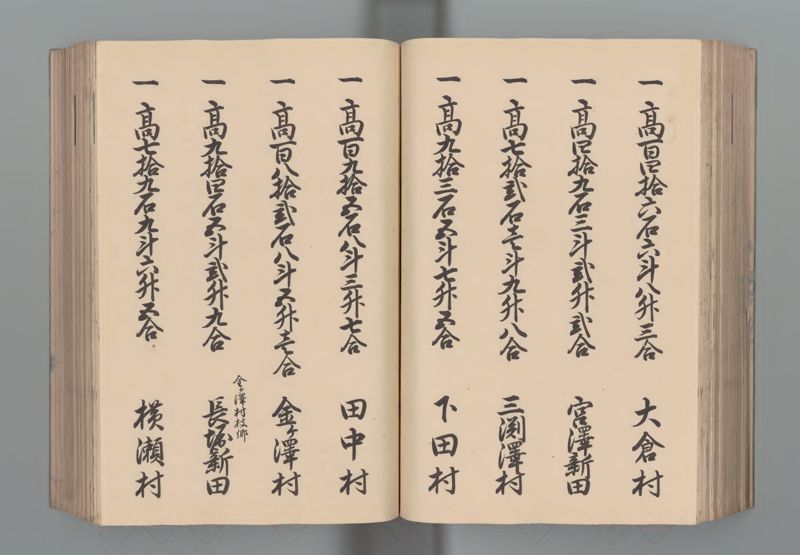 一高百四拾六石六斗八升三合 大倉村
一高四拾九石三斗弐升弐合 宮澤新田
一高七拾弐石壱斗九升八合 三渕澤村
一高九拾三石五斗七升五合 下田村
一高百九拾五石八斗三升七合 田中村
一高百八拾弐石八斗五升壱合 金ケ澤村
金ケ澤村枝郷
一高九拾四石五斗弐升九合 長堀新田
一高七拾九石九斗六升五合 横瀬村